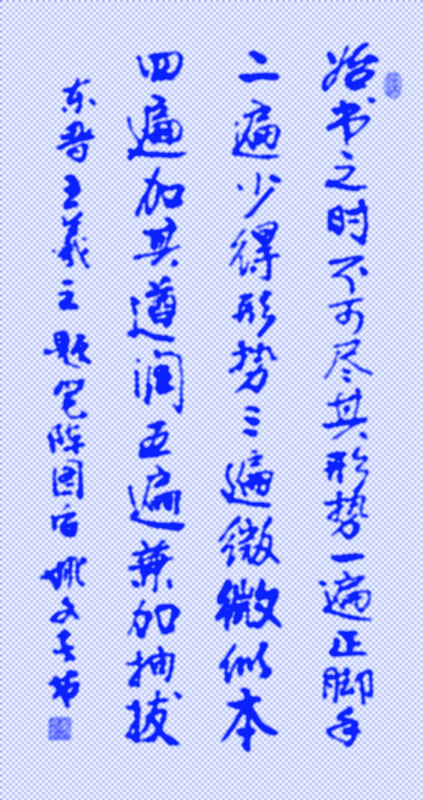 始书之时不可尽其形势一遍正脚手
二遍少得形势三遍微微似本
四遍加其遒润五遍兼加抽拔
东晋王羲之题笔阵图后